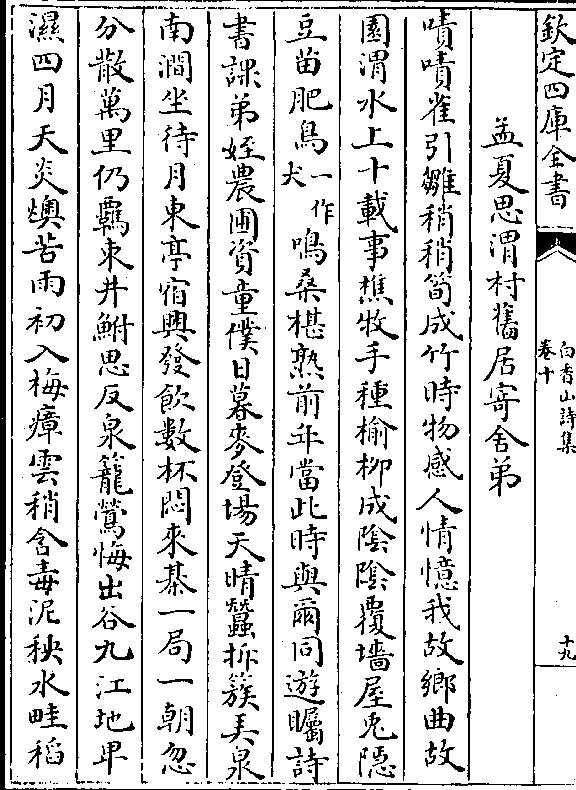 欽定四庫全書
白香山詩集
卷十
十九
孟夏思渭村舊居寄舍弟
嘖嘖雀引雛稍稍筍成竹時物感人情憶我故鄉曲故
園渭水上十載事樵牧手種榆柳成陰陰覆墻屋兎隠
豆苗肥鳥一作犬鳴桑椹熟前年當此時與爾同遊矚詩
書課弟姪農圃資童僕日暮麥登場天晴蠶拆簇弄泉
南澗坐待月東亭宿興發飲數杯悶來棊一局一朝忽
分散萬里仍覊束井鮒思反泉籠鶯悔出谷九江地卑
濕四月天炎燠苦雨初入梅瘴雲稍含毒泥秧水畦稻